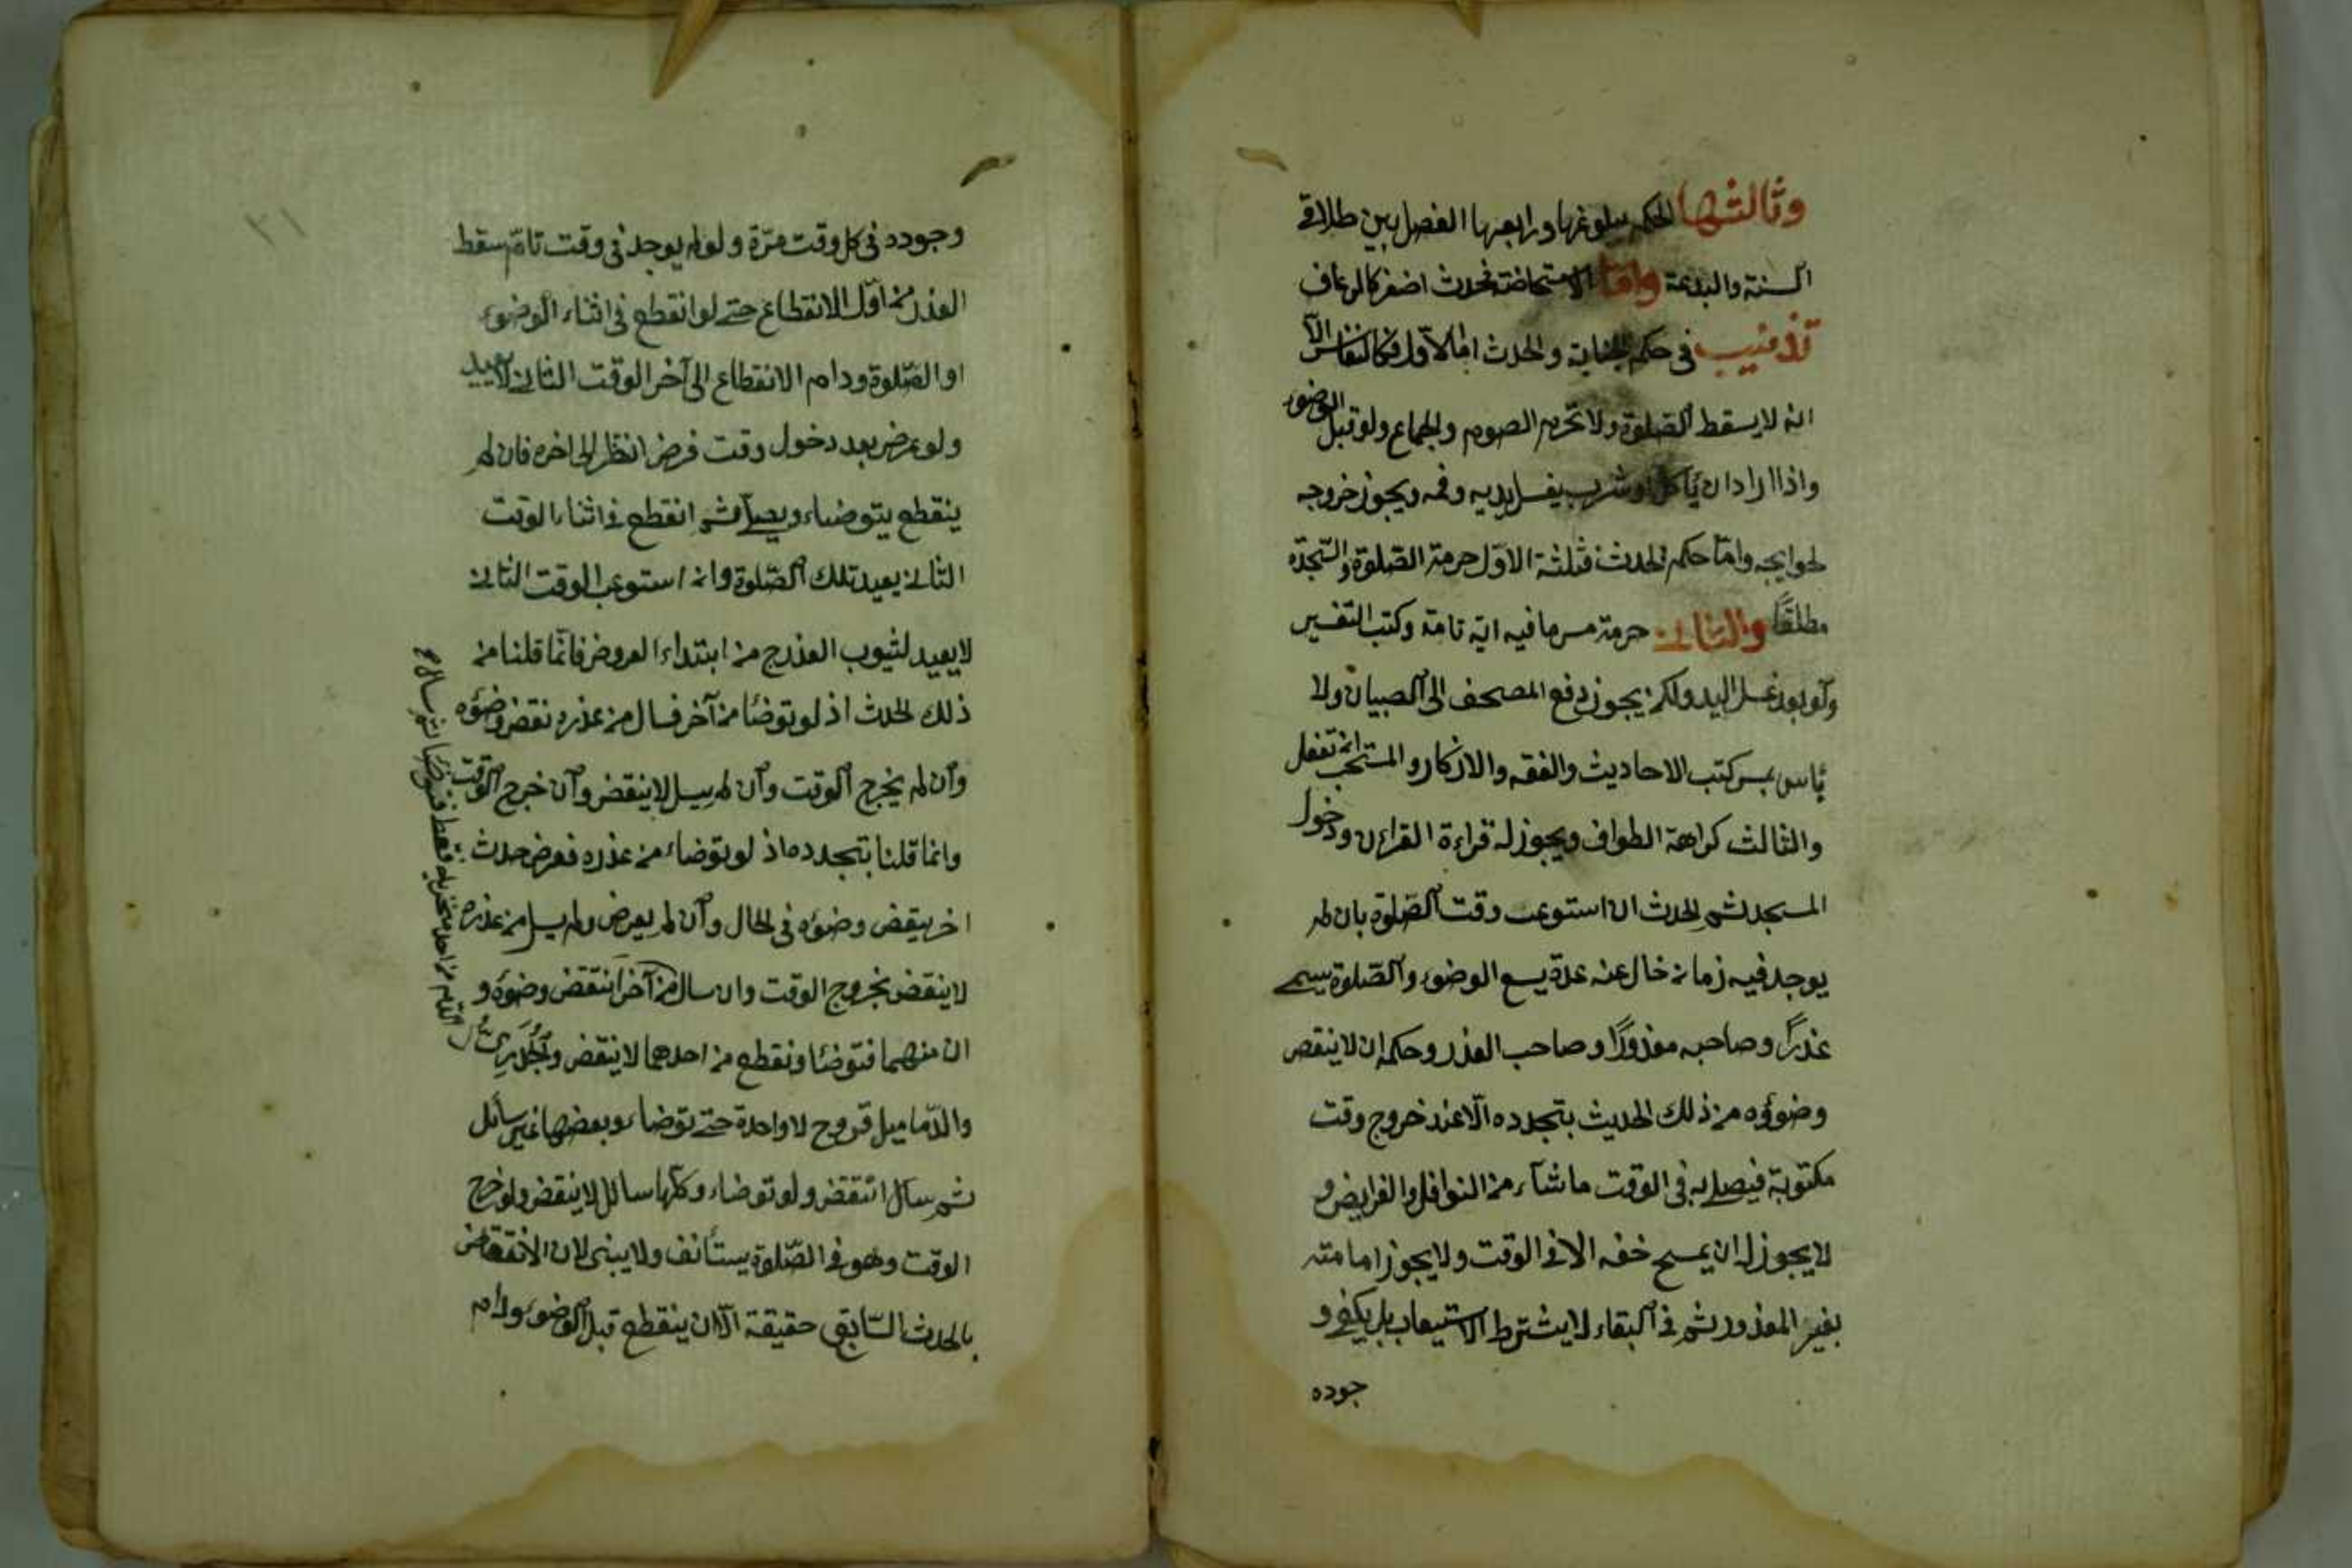 وثالثها الحكم ببلوغها ورابعها الفصل بين طلاقے
السنة والبدعة واما الاستحاضة فحدث اصغر كالرعاف
تذنيب فى حكم الجنابة والحدث اما الاول فكالنفاس الا
انه لا يسقط الصلوة ولا تحرم الصوم والجماع ولو قبل الوضوء
واذا اراد ان ياكل او شرب يغسل يديه وفمه ويجوز خروجه
لحوايجه واما حكم الحدث فثلثة الاول حرمة الصلوة والسجدة
مطلقًا والثانى حرمة مس ما فيه اية تامة وكتب التفسير
ولو بعد غسل اليد ولكن يجوز دفع المصحف الى الصبيان ولا
باس بمس كتب الاحاديث والفقه والاذكار والمستحب انه تفعل
والثالث كراهة الطواف ويجوز له قراءة القران ودخول
المسجد ثم الحدث ان استوعب وقت الصلوة بان لم
يوجد فيه زمان خال عنه عدة يسع الوضوء والصلوة يسمى
عذرًا وصاحبه معذورًا وصاحب العذر وحكمه ان لا ينقض
وضوؤه من ذلك الحديث بتجدده الا عند خروج وقت
مكتوبة فيصلى به فى الوقت ما شآء من النوافل والفرايض و
لا يجوز له ان يمسح خفه الا فى الوقت ولا يجوز امامته
بغير المعذور ثم فى البقاء لا يشترط الاستيعاب بل يكفى و
جوده
٣١
وجوده فى كل وقت مرّة ولو لم يوجد فى وقت تام سقط
العذر من اول الانقطاع حتى لو انقطع فى اثناء الوضوء
او الصلوة ودام الانقطاع الى آخر الوقت الثانى لا يعيد
ولو عرض بعد دخول وقت فرض انتظر الى اخره فان لم
ينقطع يتوضاء ويصلى ثم انقطع فى اثناء الوقت
الثانى يعيد تلك الصلوة وان استوعب الوقت الثانى
لا يعيد لثبوب العذرج من ابتداء العروض فانما قلنا من
ذلك الحدث اذ لو توضئا من آخر فسال من عذره نقض وضوؤه
وان لم يخرج الوقت وان لم يسل لا ينقض وان خرج الوقت
وانما قلنا بتجدده اذ لو توضاء من عذره فعرض حدث
اخر ينقض وضوؤه فى الحال وان لم يعرض ولم يسل من عذره
لا ينقض بخروج الوقت وان سال من آخر انتقض وضوؤه و
ان منهما فتوضئا ونقطع من احدهما لا ينقض والجُدَرِىُّ
والدّماميل قروح لا واحدة حتى توضاء وبعضها غير سائل
ثم سال انتقض ولو توضاء وكلها سائل لا ينقض ولو خرج
الوقت وهو فى الصّلوة يستأنف ولا يبنى لان الانتقاض
بالحدث السّابق حقيقة الا ان ينقطع قبل الوضوء ودام
سال الدم من احد منخريه فقط فتوضئا ثم سال